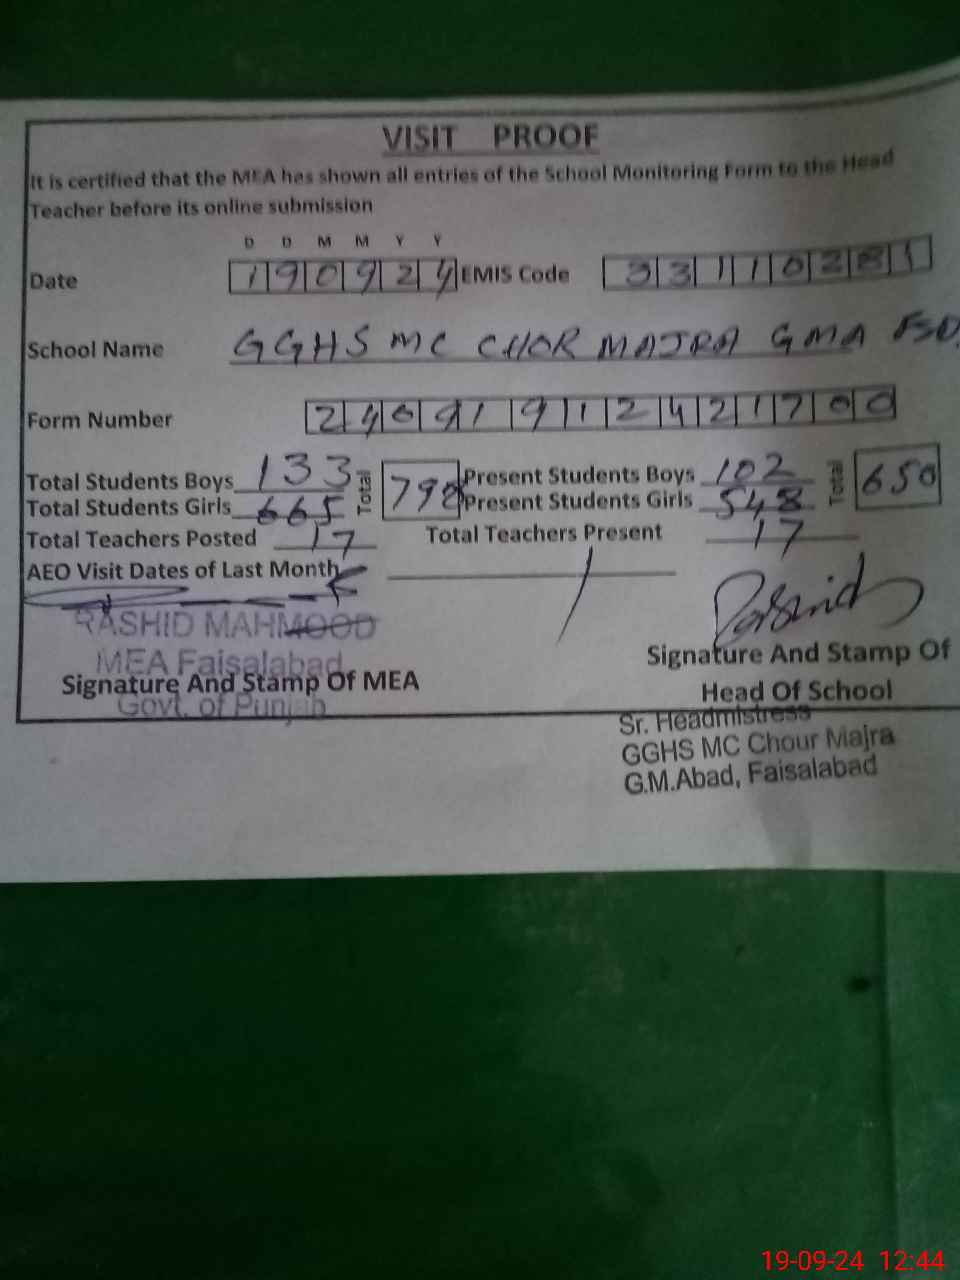 VISIT PROOF
It is certified that the MEA has shown all entries of the School Monitoring Form to the Head
Teacher before its online submission
D D M M Y Y
Date 190924 EMIS Code 33110281
School Name GGHS MC CHOR MAJRA GMA FSD.
Form Number 24091912421700
Total Students Boys 133 Total 798 Present Students Boys 102 Total 650
Total Students Girls 665 Present Students Girls 548
Total Teachers Posted 17 Total Teachers Present 17
AEO Visit Dates of Last Month
RASHID MAHMOOD
MEA Faisalabad
Govt. of Punjab
Signature And Stamp Of MEA
Signature And Stamp Of
Head Of School
Sr. Headmistress
GGHS MC Chour Majra
G.M.Abad, Faisalabad
19-09-24 12:44